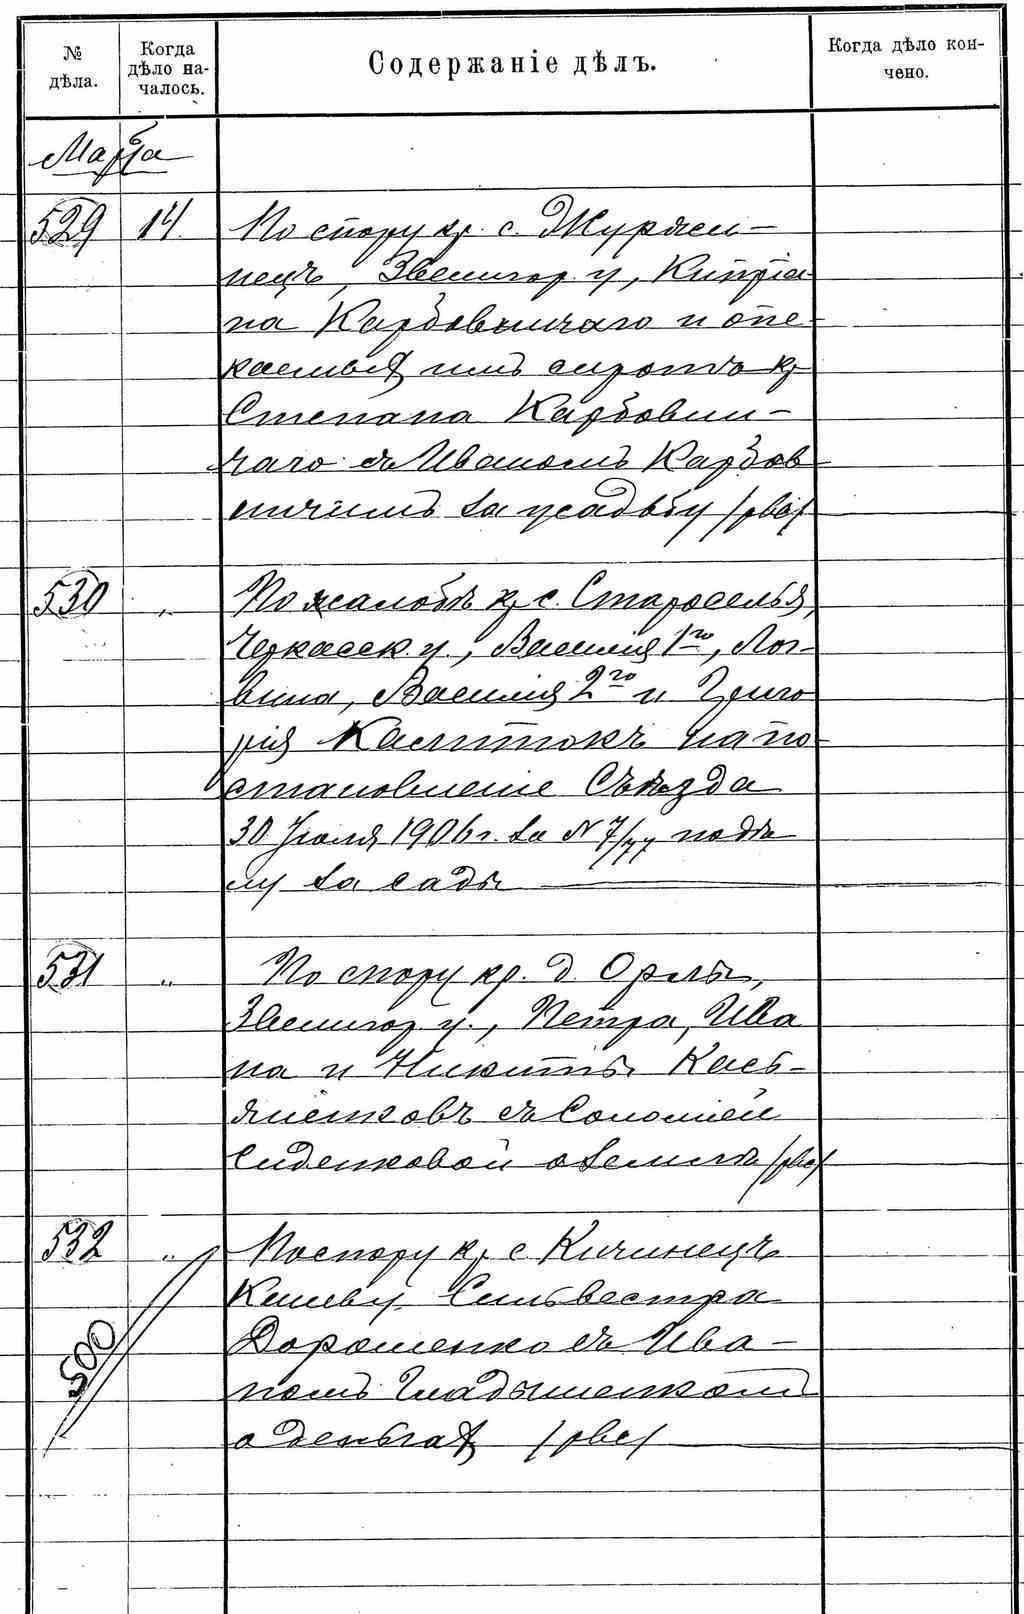 № дѣла.
Когда дѣло началось.
Содержаніе дѣлъ.
Когда дѣло кончено.
Марта
529 14. По спору кр. с. Журжи-
нецъ, Звенигор. у, Кипріа-
на Карбовничаго и опе-
каемыхъ имъ сиротъ кр
Степана Карбовни-
чаго съ Иваномъ Карбов
ничимъ за усадьбу /рвс/
530 „ По жалобѣ кр с. Староселья,
Черкасск. у., Василія 1го, Лог-
вина, Василія 2го и Григо
рія Калитокъ на по-
становленіе Съѣзда
30 Іюля 1906 г. за N 7/77 по дѣ
лу за сады
531 „ По спору кр. д. Орлы,
Звенигор. у., Петра, Ива
на и Никиты Кась-
яненковъ съ Соломіей
Сиденковой о землѣ /рвс/
532 „ По спору кр с Кичинецъ
Каневу. Сильвестра
Дорошенко съ Ива-
номъ Гладышенкомъ
о деньгахъ /рвс/
500